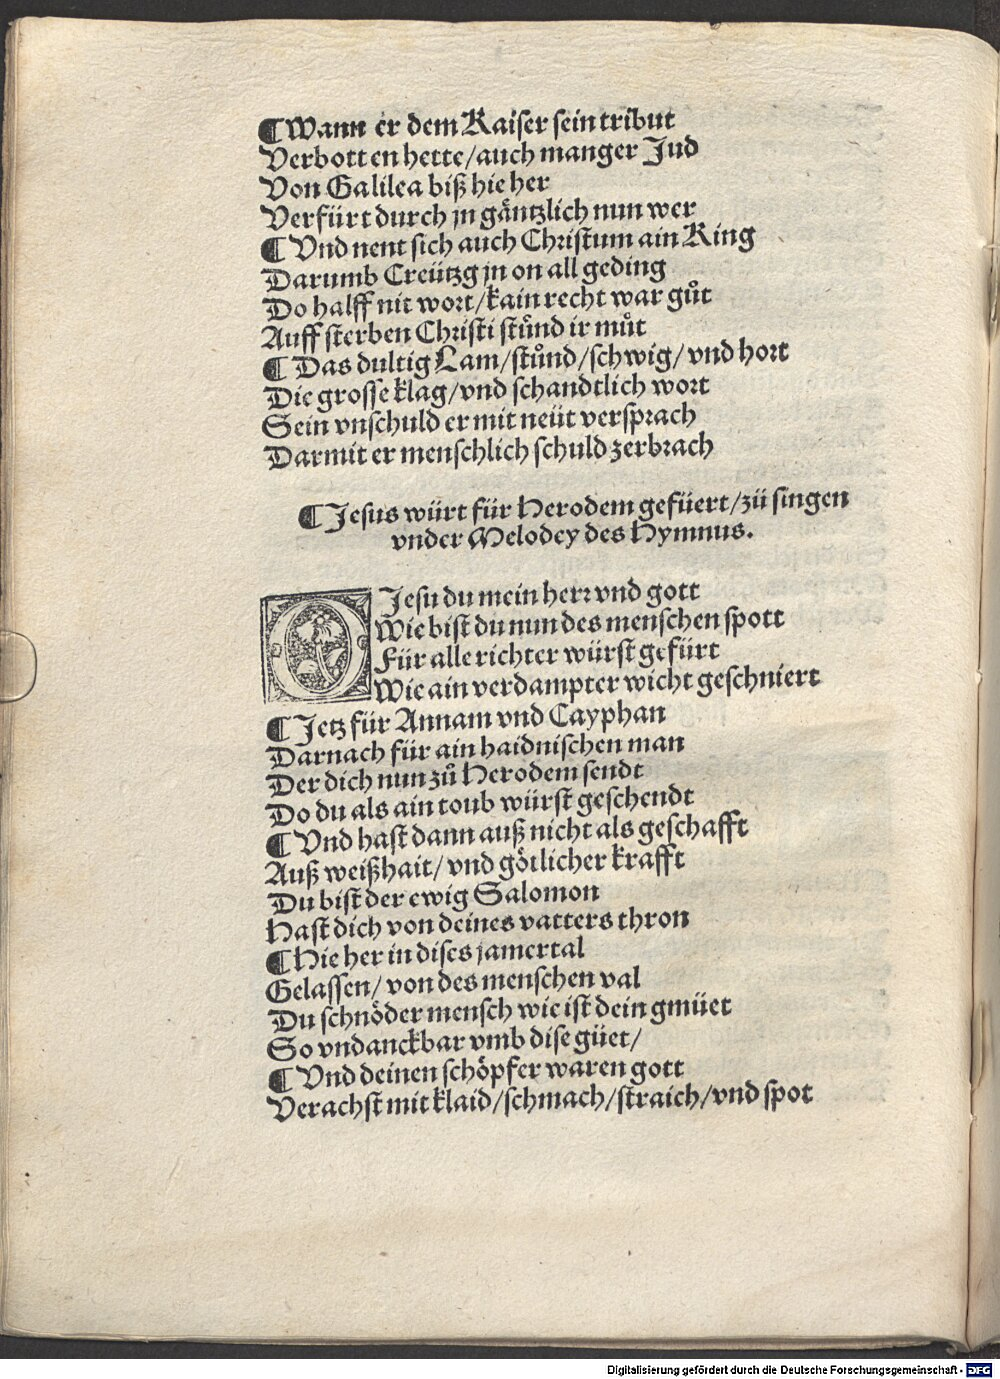 ¶ Wann er dem Kaiser sein tribut
Verbotten hette/auch manger Jud
Von Galilea biß hie her
Verfürt durch jn gäntzlich nun wer
¶ Vnd nent sich auch Christum ain King
Darumb Creützg jn on all geding
Do halff nit wort/kain recht war gůt
Auff sterben Christi stůnd ir můt
¶ Das dultig Lam/stůnd/schwig/vnd hort
Die grosse klag/vnd schandtlich wort
Sein vnschuld er mit neüt versprach
Darmit er menschlich schuld zerbrach
¶ Jesus würt für Herodem gefüert/zü singen
vnder Melodey des Hymnus.
O Jesu du mein herr vnd gott
Wie bist du nun des menschen spott
Für alle richter würst gefürt
Wie ain verdampter wicht geschniert
¶ Jetz für Annam vnd Cayphan
Darnach für ain haidnischen man
Der dich nun zů Herodem sendt
Do du als ain toub würst geschendt
¶ Vnd hast dann auß nicht als geschafft
Auß weißhait/vnd götlicher krafft
Du bist der ewig Salomon
Hast dich von deines vatters thron
¶ Hie her in dises jamertal
Gelassen/von des menschen val
Du schnöder mensch wie ist dein gmüet
So vndanckbar vmb dise güet/
¶ Vnd deinen schöpfer waren gott
Verachst mit klaid/schmach/straich/vnd spot
Digitalisierung gefördert durch die Deutsche Forschungsgemeinschaft - DFG